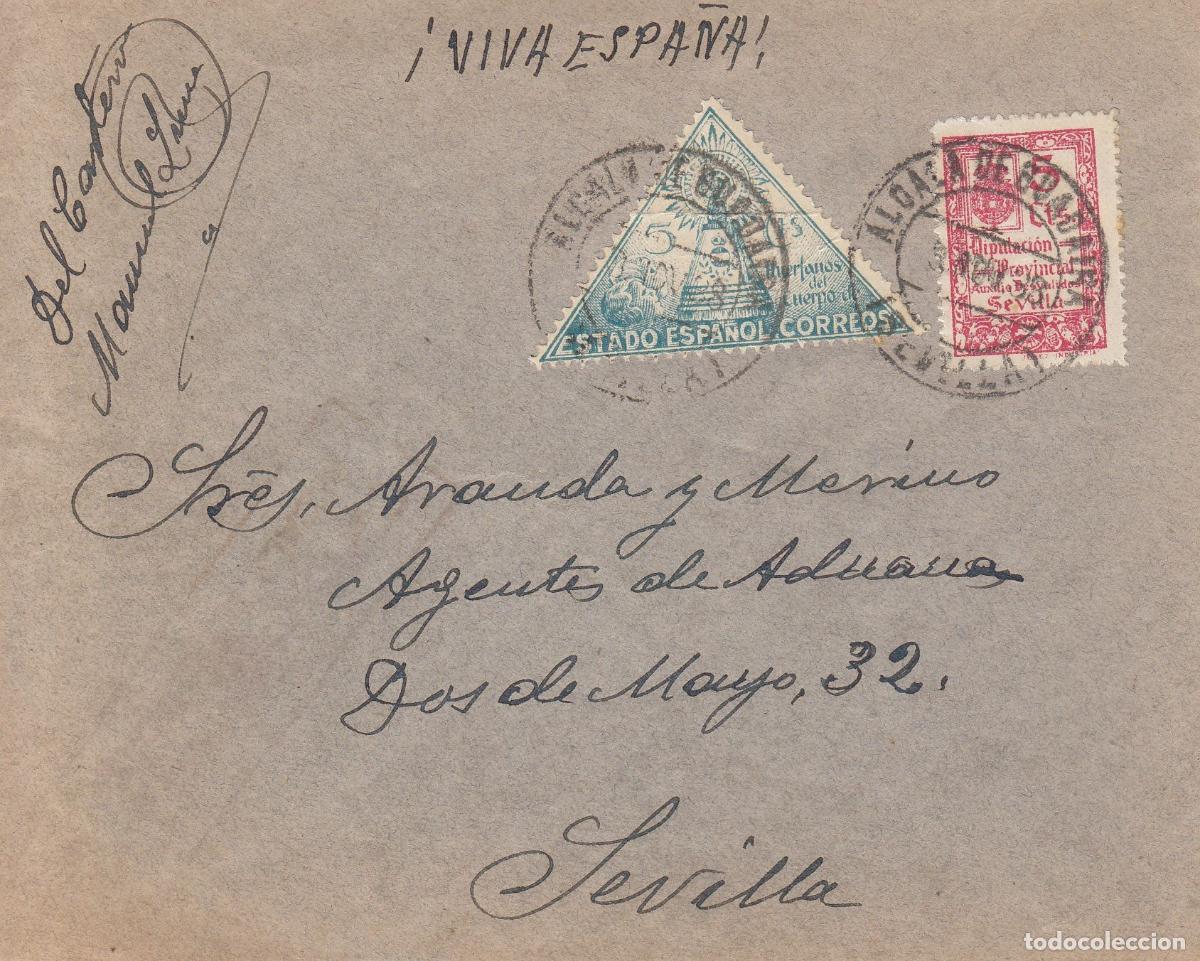 ¡VIVA ESPAÑA!
Del Cartero
Manuel
ALCALA DE GUADAIRA
SEVILLA
5
Huerfanos
del
Cuerpo de
ESTADO ESPAÑOL CORREOS
ALCALA DE GUADAIRA
SEVILLA
5
Cts
Diputación
Provincial
Auxilio Desvalidos
Sevilla
Sres, Aranda y Merino
Agentes de Aduana
Dos de Mayo, 32.
Sevilla
todocoleccion